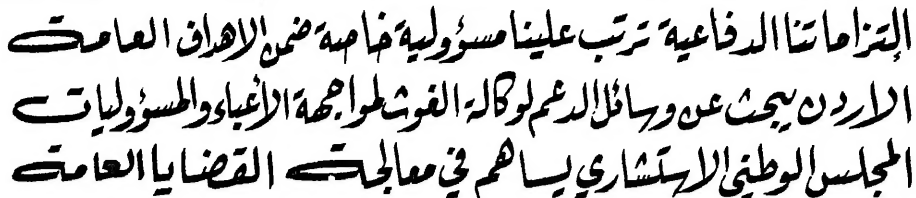 إلتزاماتنا الدفاعية ترتب علينا مسؤولية خاصة ضمن الاهداف العامة
الاردن يبحث عن وسائل الدعم لوكالة الغوث لمواجهة الأعباء والمسؤوليات
المجلس الوطني الاستشاري يساهم في معالجة القضايا العامة